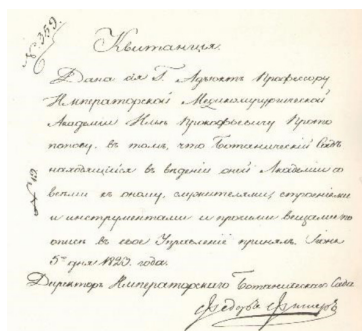 № 359.
Квитанція.
Дана сія Г. Адъюнкт Профессору
Императорской Медикохирургической
Академіи Ильѣ Прокофьевичу Прото
попову, въ томъ, что Ботаническій Садъ
находящійся въ вѣденіи оной Академіи со
всѣми къ оному, служителями, строеніями
и инструментами и прочими вещами по
описи въ свое Управленіе принялъ. Іюня
5го дня 1823 года.
Директоръ Императорскаго Ботаническаго Сада
Фишеръ